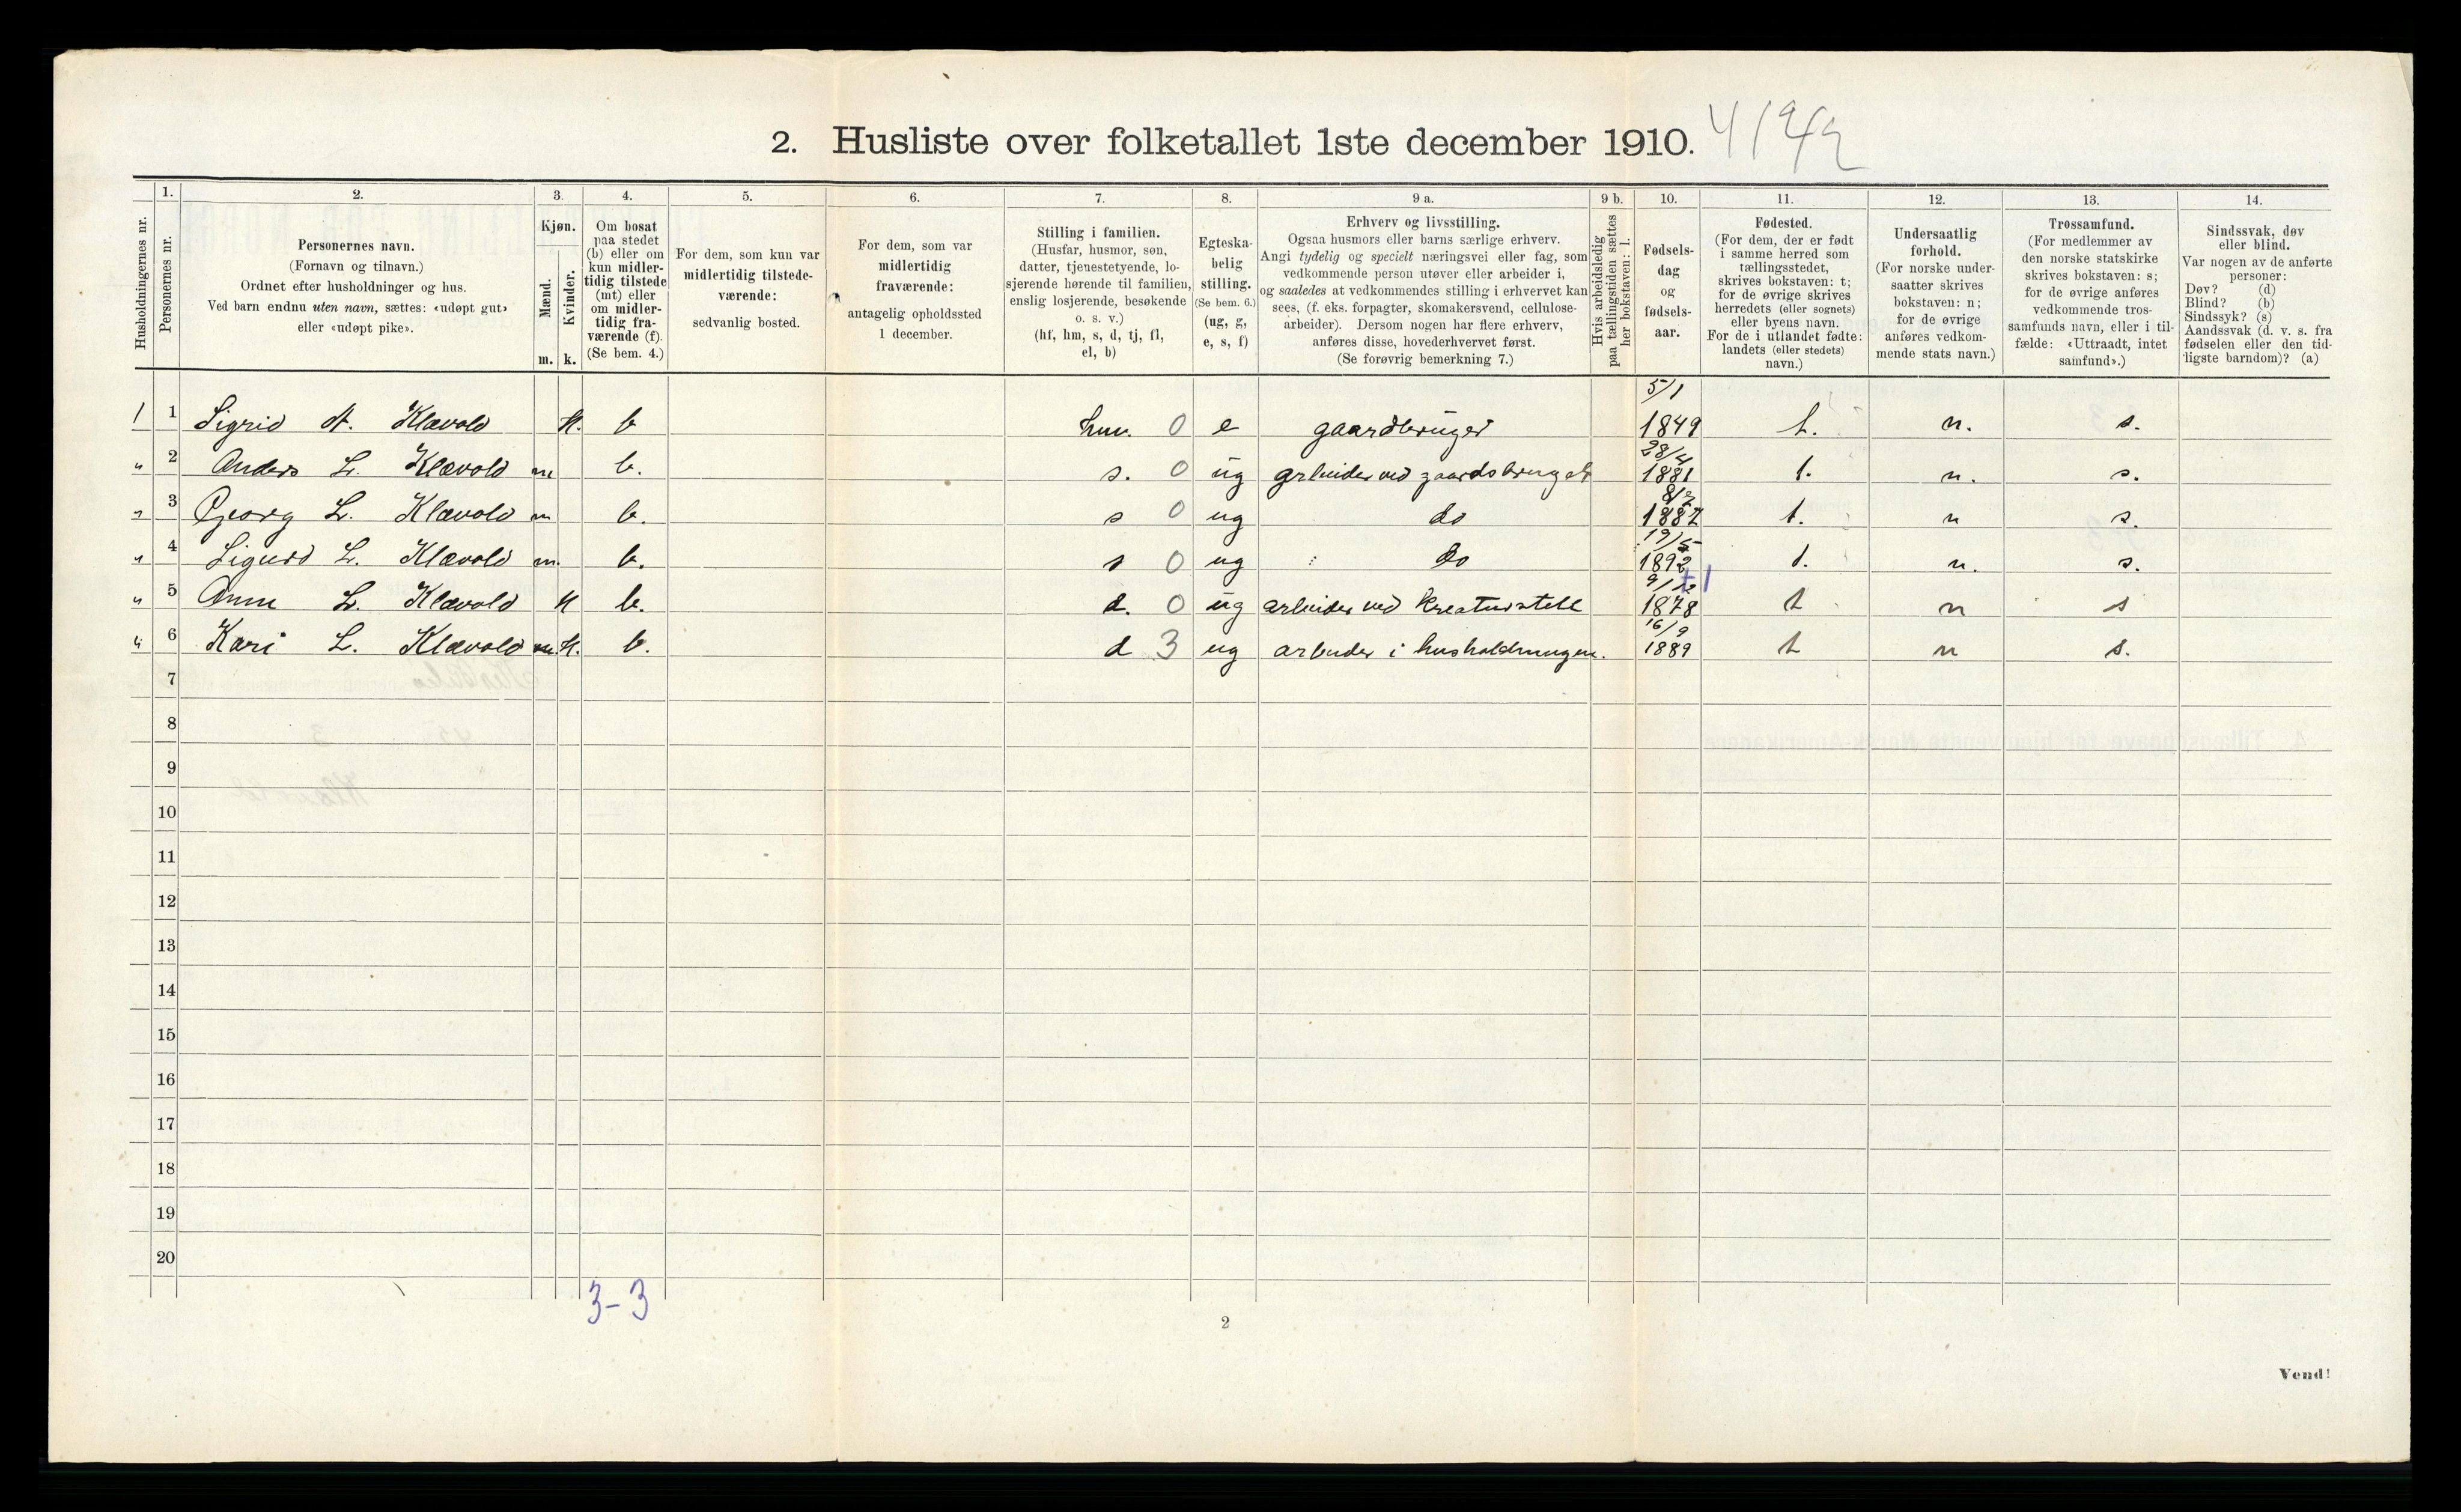 2. Husliste over folketallet 1ste december 1910.
Husholdningernes nr.
1.
Personernes nr.
2.
Personernes navn.
(Fornavn og tilnavn.)
Ordnet efter husholdninger og hus.
Ved barn endnu uten navn, sættes: «udøpt gut»
eller «udøpt pike».
3.
Kjøn.
Mænd.
Kvinder.
m. k.
4.
Om bosat
paa stedet
(b) eller om
kun midler-
tidig tilstede
(mt) eller
om midler-
tidig fra-
værende (f).
(Se bem. 4.)
5.
For dem, som kun var
midlertidig tilstede-
værende:
sedvanlig bosted.
6.
For dem, som var
midlertidig
fraværende:
antagelig opholdssted
1 december.
7.
Stilling i familien.
(Husfar, husmor, søn,
datter, tjenestetyende, lo-
sjerende hørende til familien,
enslig losjerende, besøkende
o. s. v.)
(hf, hm, s, d, tj, fl,
el, b)
8.
Egteska-
belig
stilling.
(Se bem. 6.)
(ug, g,
e, s, f)
9 a.
Erhverv og livsstilling.
Ogsaa husmors eller barns særlige erhverv.
Angi tydelig og specielt næringsvei eller fag, som
vedkommende person utøver eller arbeider i,
og saaledes at vedkommendes stilling i erhvervet kan
sees, (f. eks. forpagter, skomakersvend, cellulose-
arbeider). Dersom nogen har flere erhverv,
anføres disse, hovederhvervet først.
(Se forøvrig bemerkning 7.)
9 b.
Hvis arbeidsledig
paa tællingstiden sættes
her bokstaven: l.
10.
Fødsels-
dag
og
fødsels-
aar.
11.
Fødested.
(For dem, der er født
i samme herred som
tællingsstedet,
skrives bokstaven: t;
for de øvrige skrives
herredets (eller sognets)
eller byens navn.
For de i utlandet fødte:
landets (eller stedets)
navn.)
12.
Undersaatlig
forhold.
(For norske under-
saatter skrives
bokstaven: n;
for de øvrige
anføres vedkom-
mende stats navn.)
13.
Trossamfund.
(For medlemmer av
den norske statskirke
skrives bokstaven: s;
for de øvrige anføres
vedkommende tros-
samfunds navn, eller i til-
fælde: «Uttraadt, intet
samfund».)
14.
Sindssvak, døv
eller blind.
Var nogen av de anførte
personer:
Døv? (d)
Blind? (b)
Sindssyk? (s)
Aandssvak (d. v. s. fra
fødselen eller den tid-
ligste barndom)? (a)
1 1 Sigrid A. Klævold k. b hm. 0 e gaardbruger 5/1 1849 t. n. s.
" 2 Anders L. Klævold m b. s. 0 ug arbeider ved gaardsbruget 28/4 1881 t. n. s.
" 3 Georg L. Klævold m b. s 0 ug do 1887 t. n s.
" 4 Sigurd L. Klævold m. b. s 0 ug do 19/5 1892 t. n. s.
" 5 L. Klævold k b. d. 0 ug arbeider ved kreaturstell 9/12 1878 t n s
" 6 Kari L. Klævold k. b. d 3 ug arbeider i husholdningen. 16/9 1889 t n s.
7
8
9
10
11
12
13
14
15
16
17
18
19
20
3-3
2
Vend!